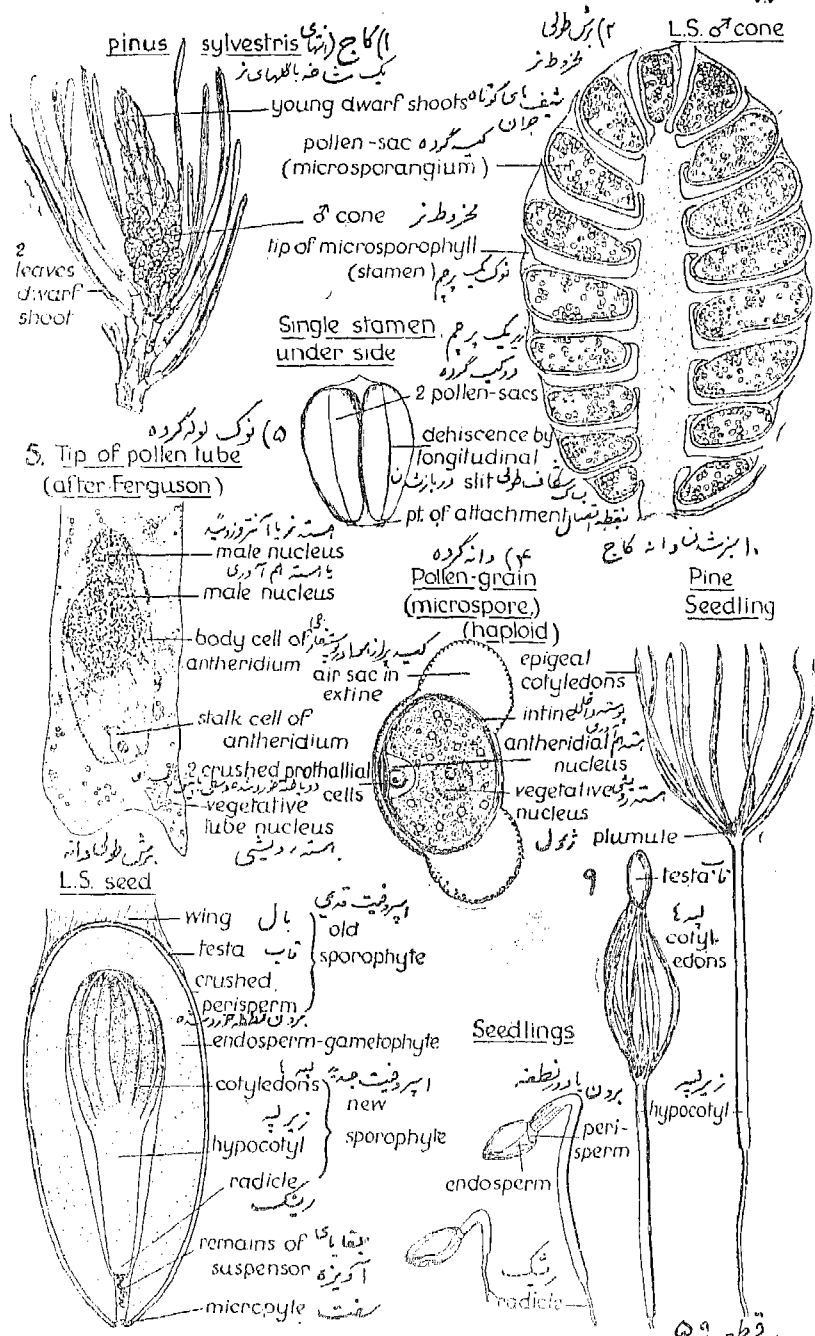 pinus sylvestris کاج (۱
یک شاخه با گلهای نر
young dwarf shoots
جوان
pollen-sac کیسه گرده
(microsporangium)
♂ cone مخروط نر
tip of microsporophyll
(stamen) پرچم
2
leaves
dwarf
shoot
۲) برش طولی
مخروط نر
L.S. ♂ cone
Single stamen
under side
یک پرچم
دو کیسه گرده
2 pollen-sacs
dehiscence by
longitudinal
slit شکاف طولی
pt. of attachment نقطه اتصال
۵) نوک لوله گرده
5. Tip of pollen tube
(after Ferguson)
male nucleus
male nucleus
body cell of
antheridium
stalk cell of
antheridium
2 crushed prothallial
cells
vegetative
tube nucleus
هسته رویشی
۴) دانه گرده
Pollen-grain
(microspore,)
(haploid)
air sac in
extine
intine
antheridial
nucleus
vegetative
nucleus
هسته رویشی
کاج
Pine
Seedling
epigeal
cotyledons
plumule
برش طولی دانه
L.S. seed
wing بال
testa
crushed
perisperm
old
sporophyte
endosperm-gametophyte
cotyledons لپه ها
hypocotyl
زیر لپه
radicle
new
sporophyte
remains of بقایای
suspensor آویزه
micropyle سفت
Seedlings
peri-
sperm
endosperm
radicle
۹
testa
لپه ها
cotyl-
edons
زیر لپه
hypocotyl